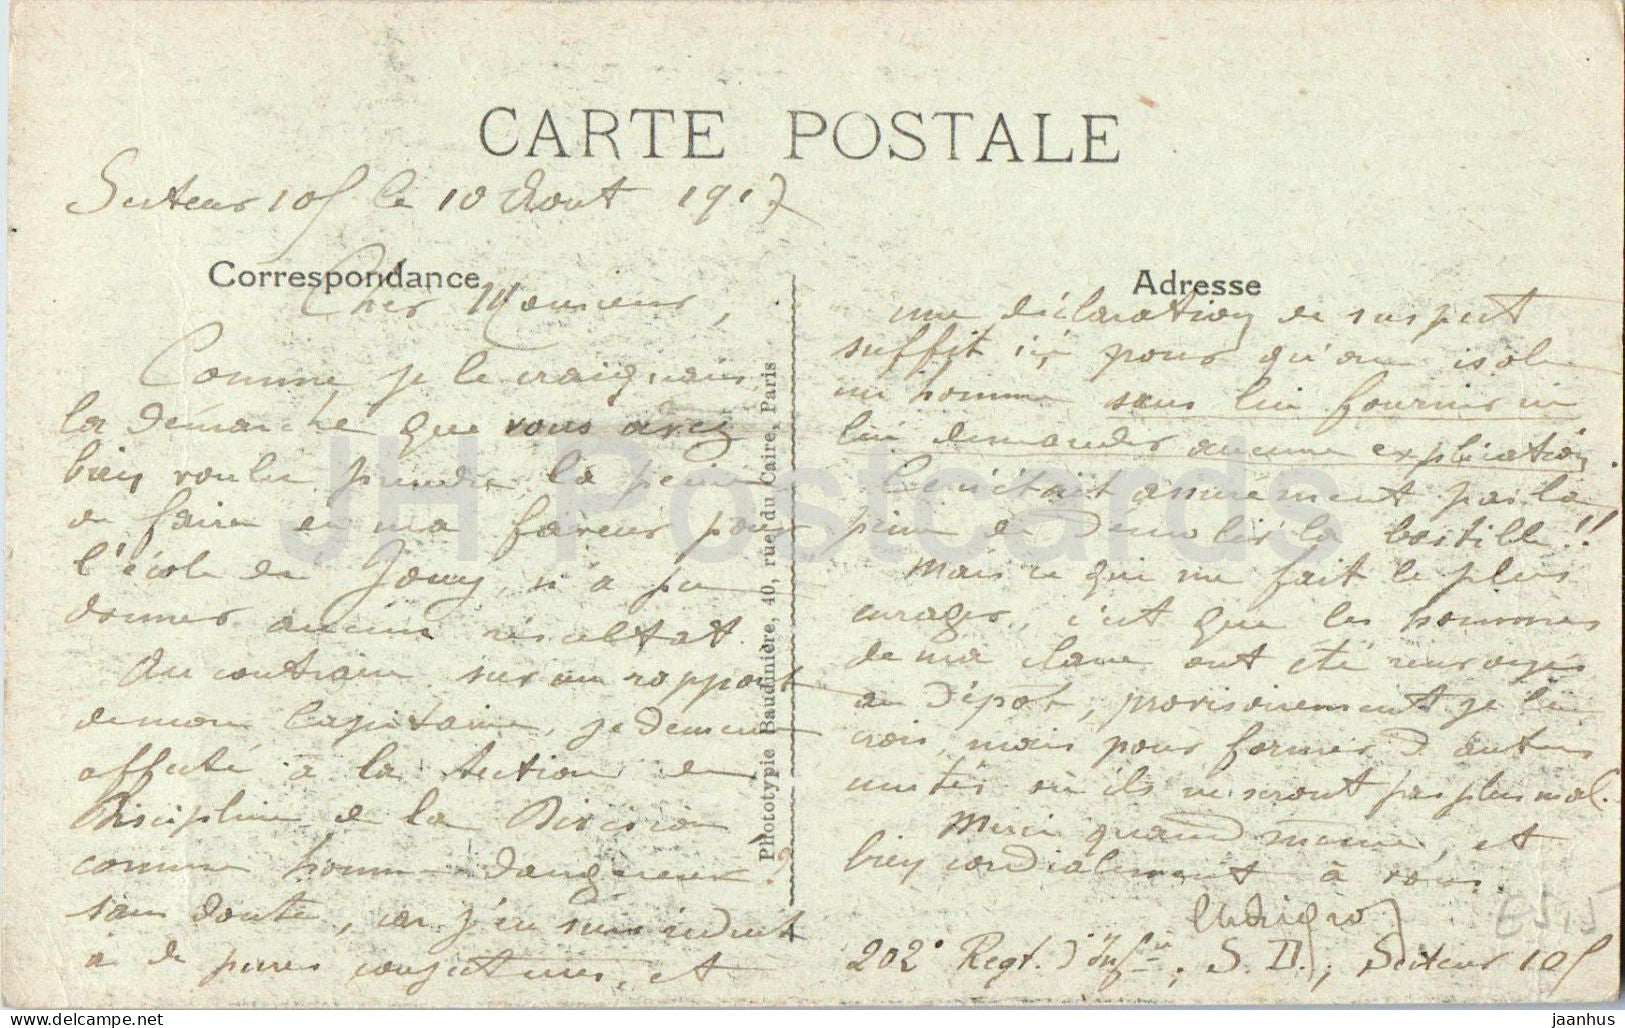 CARTE POSTALE
Secteur 105 le 10 Aout 1917
Correspondance
Cher Monsieur,
Comme je le craignais,
la démarche que vous avez
bien voulu prendre la peine
de faire en ma faveur pour
l'école de Jouy, n'a pu
donner aucun résultat.
Au contraire, sur un rapport
de mon Capitaine, je demeure
affecté à la Section de
Discipline de la Division,
comme homme dangereux ?
sans doute, car j'en suis réduit
à de pures conjectures, et
Adresse
une déclaration de suspect
suffit ici pour qu'on isole
un homme sans lui fournir ni
lui demander aucune explication.
Ce n'était assurément pas la
peine de démolir la bastille !!
Mais ce qui me fait le plus
enrager, c'est que les hommes
de ma classe ont été renvoyés
au Dépôt, provisoirement je le
crois, mais pour former d'autres
unités où ils ne seront pas plus mal.
Merci quand même, et
bien cordialement à vous.
202e Regt. d'Infie, S. D., Secteur 105
Phototypie Baudinière, 40, rue du Caire, Paris
JH Postcards
delcampe.net
jaanhus